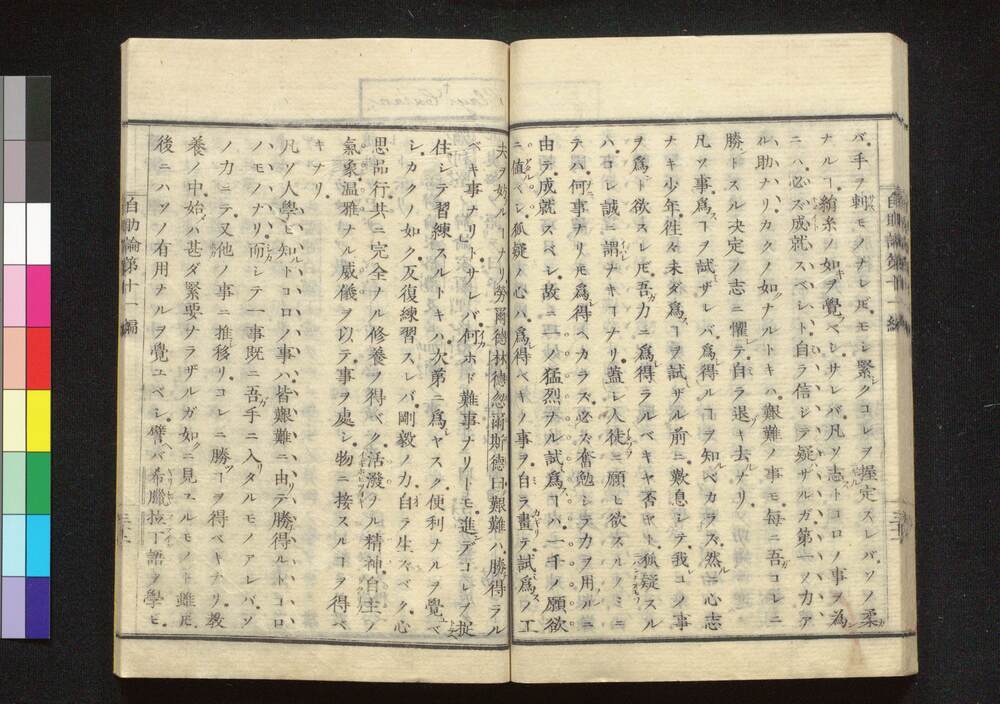 バ手ヲ刺モノナレ𪜈モシ緊クコレヲ握定スレバソノ柔
ナルヿ絹糸ノ如ヲ覺ベシサレバ凡ソ志トコロノ事ヲ為
ニハ必ズ成就スベシト自ラ信シテ疑ザルガ第一ノ力ア
ル助ナリカクノ如ナルトキハ艱難ノ事モ毎ニ吾コレニ
勝トスル決定ノ志ニ懼テ自ラ退キ去ナリ
凡ソ事為スヿヲ試ザレバ為得ルヿヲ知ベカラズ然ルニ心志
ナキ少年徃々未ダ為スヿヲ試ザル前ニ歎息シテ我コノ事
ヲ為ト欲スレ𪜈吾力ニ為得ラルベキヤ否ヤト狐疑スル
ハコレ誠ニ謂ナキヿナリ蓋シ人徒ニ願ヒ欲スルノミニ
テハ何事ナリ𪜈為得ベカラズ必ズ奮勉シテ力ヲ用ルニ
由テ成就スベシ故ニ一ノ猛烈ナル試為スヿハ一千ノ願欲
ニ値ベシ狐疑ノ心ハ為得ベキノ事ヲ自ラ畫テ試為スノ工
夫ヲ妨ルヿナリ勞爾德林德忽爾斯德曰艱難ハ勝得ラル
ベキ事ナリトサレバ何ホド難事ナリトモ進デコレヲ捉
住シテ習練スルトキハ次第ニ為ヤスク便利ナルヲ覺ユベ
シカクノ如ク反復練習スレバ剛毅ノ力自ラ生ズベク心
思品行共ニ完全ナル修養ヲ得ベク活潑ナル精神自主ノ
氣象溫雅ナル威儀ヲ以テ事ヲ處シ物ニ接スルヿヲ得ベ
キナリ
凡ソ人學ビ知ルトコロノ事ハ皆艱難ニ由テ勝得ルトコロ
ノモノナリ而シテ一事既ニ吾手ニ入リタルモノアレバソ
ノ力ニテ又他ノ事ニ推移リコレニ勝ヿヲ得ベキナリ教
養ノ中始ハ甚ダ緊要ナラザルガ如ニ見ユルモノト雖𪜈
後ニハソノ有用ナルヲ覺ユベシ譬ヘバ希臘拉丁語ヲ學ビ
自助論第十一編